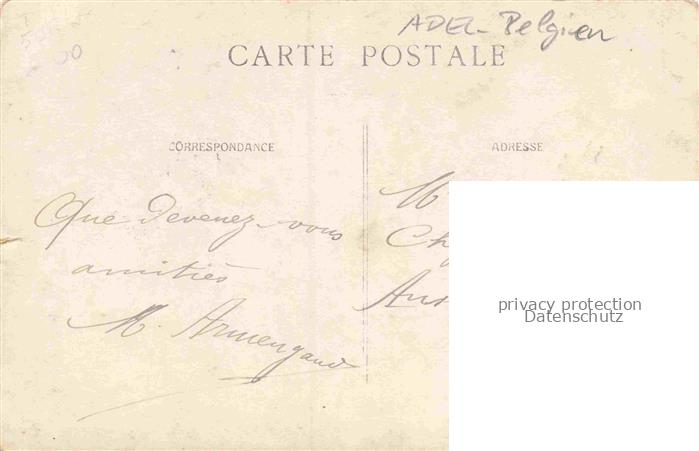 ADEL - Belgien
CARTE POSTALE
CORRESPONDANCE
ADRESSE
Que devenez-vous
amitiés
M. Armengaud
M
Ch
Aus
privacy protection
Datenschutz